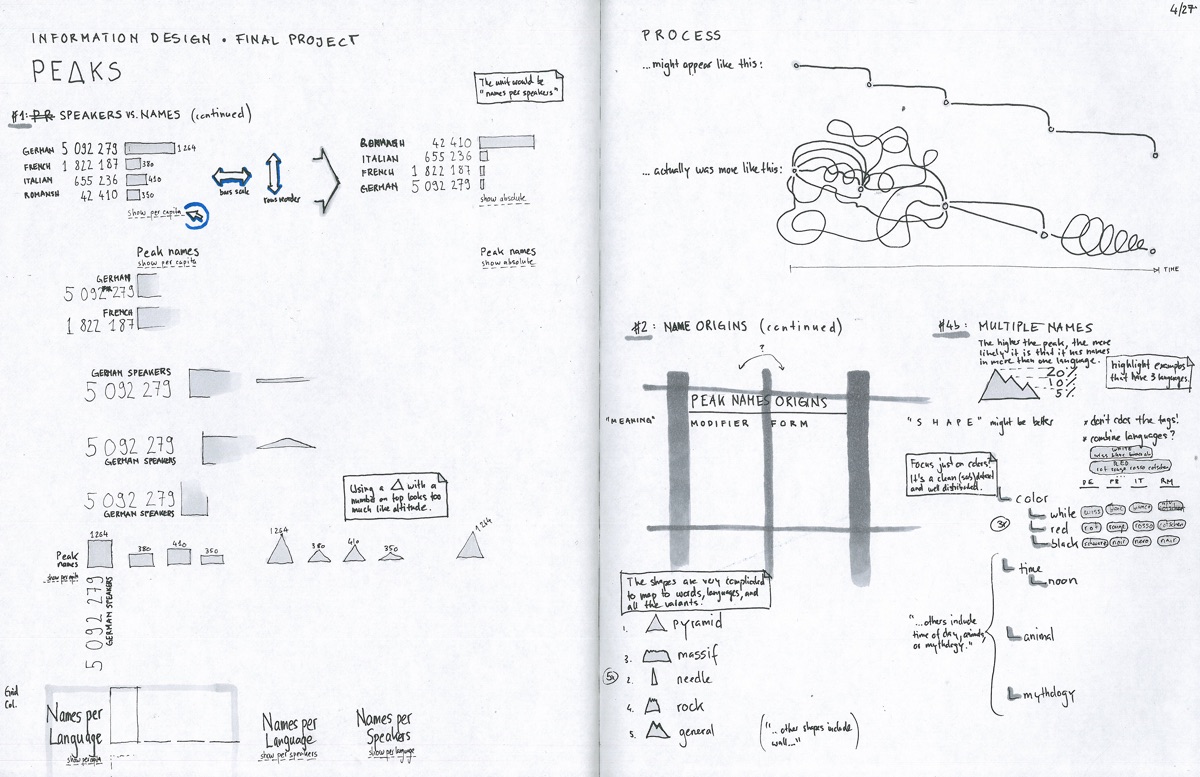 INFORMATION DESIGN • FINAL PROJECT
PEAKS
The unit would be
"names per speakers"
#1: PR SPEAKERS VS. NAMES (continued)
GERMAN 5 092 279 1264
FRENCH 1 822 187 380
ITALIAN 655 236 410
ROMANSH 42 410 350
show per capita
bars scale
rows reorder
ROMANSH 42 410
ITALIAN 655 236
FRENCH 1 822 187
GERMAN 5 092 279
show absolute
Peak names
show per capita
Peak names
show absolute
GERMAN
5 092 279
FRENCH
1 822 187
GERMAN SPEAKERS
5 092 279
5 092 279
GERMAN SPEAKERS
5 092 279
GERMAN SPEAKERS
Using a △ with a
number on top looks too
much like altitude.
Peak
names
1264
380
410
350
1264
380
410
350
1264
5 092 279
GERMAN SPEAKERS
Grid
Col.
Names per
Language
Names per
Language
show per speakers
Names per
Speakers
show per language
4/27
PROCESS
...might appear like this:
... actually was more like this:
TIME
#2: NAME ORIGINS (continued)
?
PEAK NAMES ORIGINS
"MEANING"
MODIFIER FORM
"SHAPE" might be better
The shapes are very complicated
to map to words, languages, and
all the variants.
1. pyramid
3. massif
5x
2. needle
4. rock
5. general
("... other shapes include
wall...")
#4b: MULTIPLE NAMES
The higher the peak, the more
likely it is that it has names
in more than one language.
20%
10%
5%
highlight examples
that have 3 languages.
* don't color the tags!
* combine languages?
WHITE
RED
rot rouge rosso cotschen
DE FR IT RM
Focus just on colors!
It's a clean (sub)dataset
and well distributed.
color
3x
white
red rot rouge rosso cotschen
black schwarz noir nero nair
time
noon
"...others include
time of day, animals,
or mythology."
animal
mythology